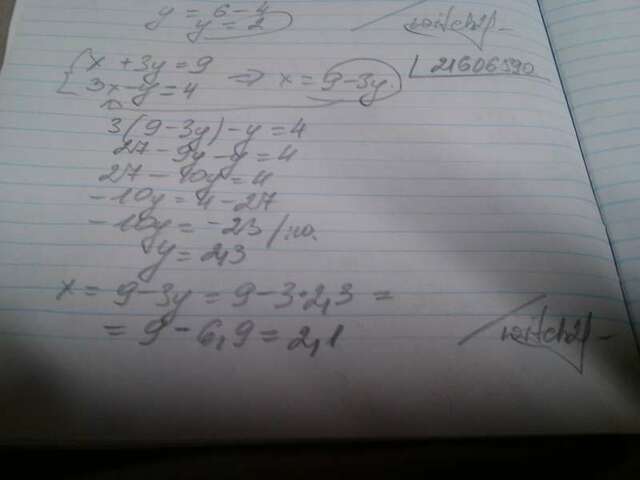 y = 6 - 4
y = 2
{ x + 3y = 9 ⇒ x = 9 - 3y. 21606590
3x - y = 4
3(9 - 3y) - y = 4
27 - 9y - y = 4
27 - 10y = 4
-10y = 4 - 27
-10y = -23 /:10.
y = 2,3
x = 9 - 3y = 9 - 3·2,3 =
= 9 - 6,9 = 2,1